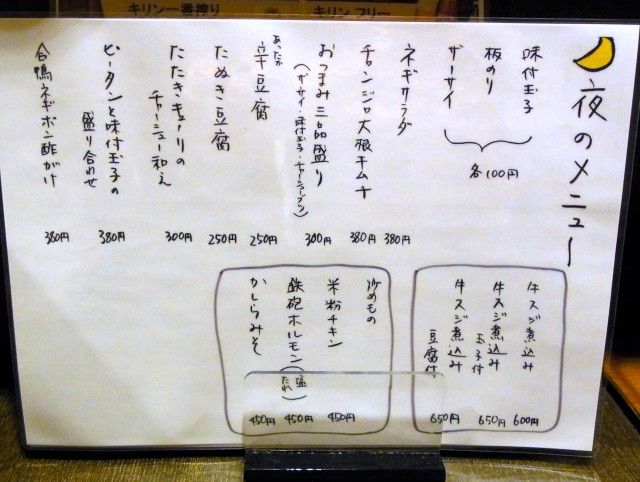 キリン一番搾り
キリン フリー
夜のメニュー
味付玉子
板のり
ザーサイ
各100円
ネギサラダ 380円
チャンジャ大根キムチ 380円
おつまみ三品盛り 300円
(ザーサイ・味付玉子・チャーシューブツ)
あったか
辛豆腐 250円
たぬき豆腐 250円
たたきキューリの
チャーシュー和え 300円
ピータンと味付玉子の
盛り合わせ 380円
合鴨ネギポン酢がけ 380円
牛スジ煮込み 600円
牛スジ煮込み
玉子付 650円
牛スジ煮込み
豆腐付 650円
炒めもの
米粉チキン 450円
鉄砲ホルモン(塩 たれ) 450円
かしらみそ 450円